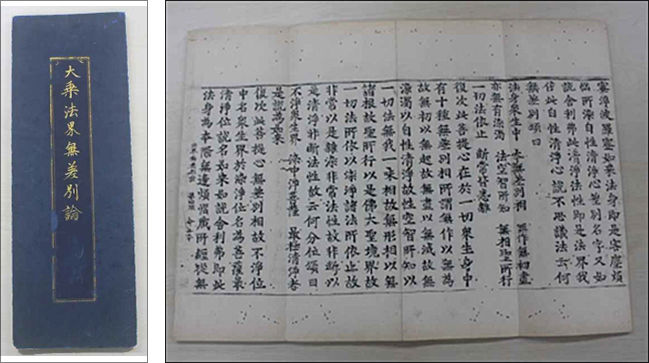 大乘法界無差別論
淨波羅蜜如來法身即是客塵煩
惱所染自性清淨心差別名字又如
說舍利弗此清淨法性即是法界我
依此自性清淨心說不思議法云何
無差別頌曰
法身衆生中 本無差別相 無作無初盡
亦無有染濁 法空智所知 無相聖所行
一切法依止 斷常皆悉離
復次此菩提心在於一切衆生身中
有十種無差別相所謂無作以無爲
故無初以無起故無盡以無滅故無
染濁以自性清淨故性空智所知以
一切法無我一味相故無形相以無
諸根故聖所行以是佛大聖境界故
一切法所依以染淨諸法所依止故
非常以是雜染非常法性故非斷以
是清淨非斷法性故云何分位頌曰
不淨衆生界 染中淨菩薩 最極清淨者
是說爲如來
復次此菩提心無差別相故不淨位
中名衆生界於染淨位名爲菩薩最
清淨位說名如來如說舍利弗即此
法身爲本際無邊煩惱藏所纏從無